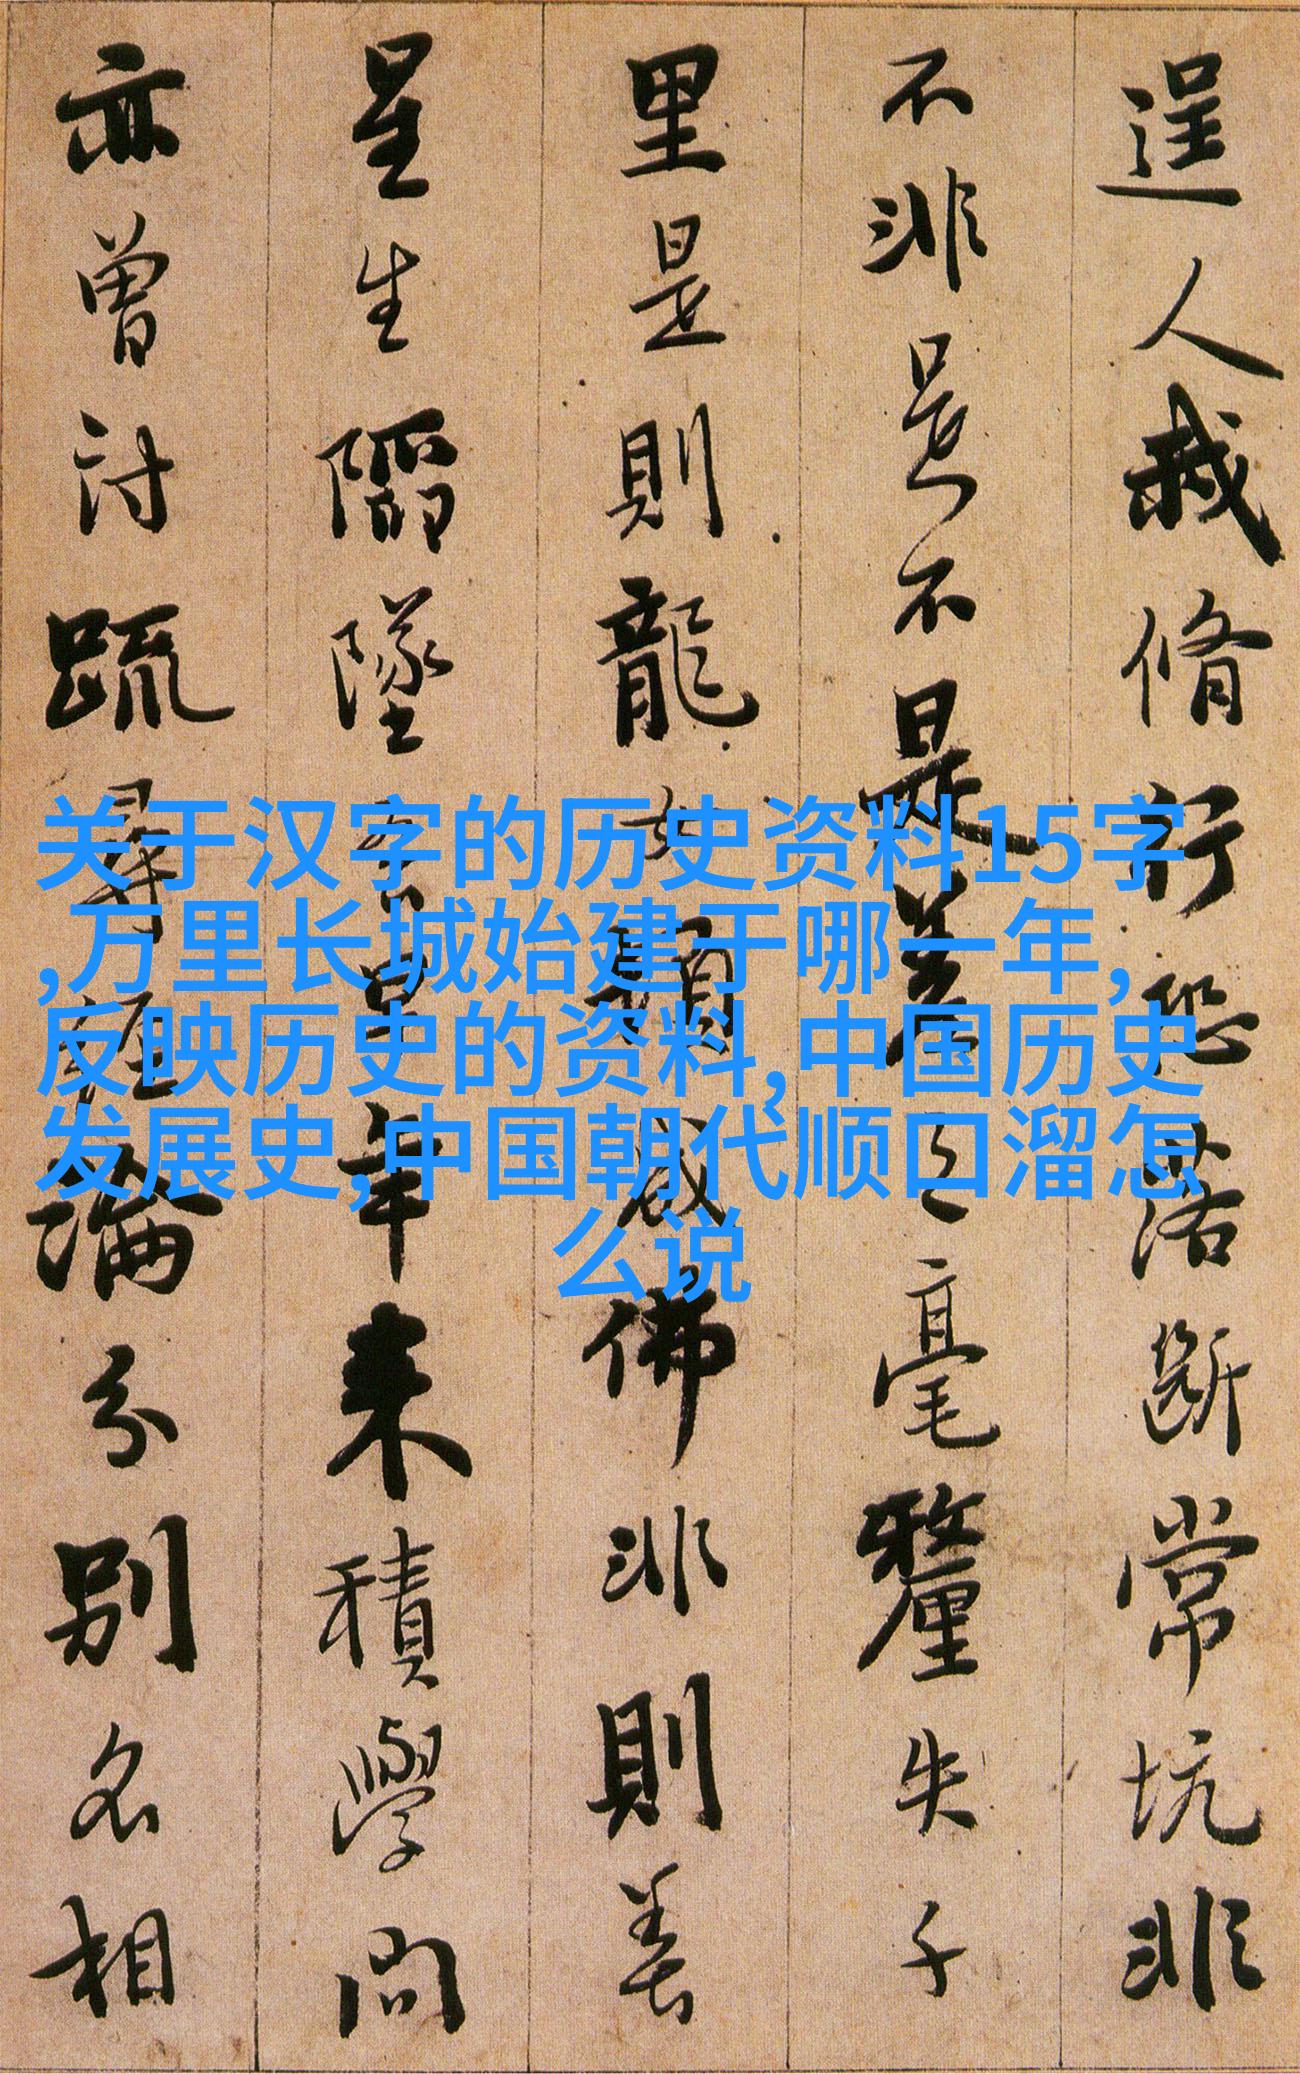 关于汉字的历史资料15字
,万里长城始建于哪一年,
反映历史的资料,中国历史
发展史,中国朝代顺口溜怎
么说
逞人我脩行恐落斷常坑非
不非是不是差之毫釐失千
里是則龍女頓成佛非則善
星生陷墜吾早年来積學問
亦曾討疏尋經論分别名相